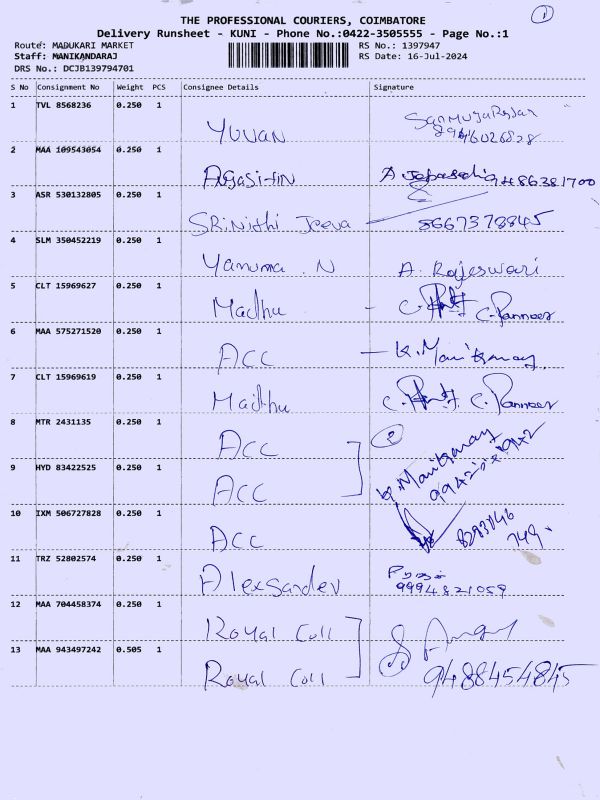 1
THE PROFESSIONAL COURIERS, COIMBATORE
Delivery Runsheet - KUNI - Phone No.:0422-3505555 - Page No.:1
Route: MADUKARI MARKET RS No.: 1397947
Staff: MANIKANDARAJ RS Date: 16-Jul-2024
DRS No.: DCJB139794701
S No Consignment No Weight PCS Consignee Details Signature
1 TVL 8568236 0.250 1
YUVAN
2 MAA 109543054 0.250 1
9486381700
3 ASR 530132805 0.250 1
SRiNithi Jeeva 8667378845
4 SLM 350452219 0.250 1
Yamuna . N A. Rajeswari
5 CLT 15969627 0.250 1
Madhu - C. Panneer
6 MAA 575271520 0.250 1
ACC -
7 CLT 15969619 0.250 1
Madhu C. Panneer
8 MTR 2431135 0.250 1
ACC 2
9 HYD 83422525 0.250 1
ACC
10 IXM 506727828 0.250 1
ACC 749.
11 TRZ 52802574 0.250 1
Alexsander 9994821059
12 MAA 704458374 0.250 1
Royal Coll
13 MAA 943497242 0.505 1
Royal Coll 9488454845